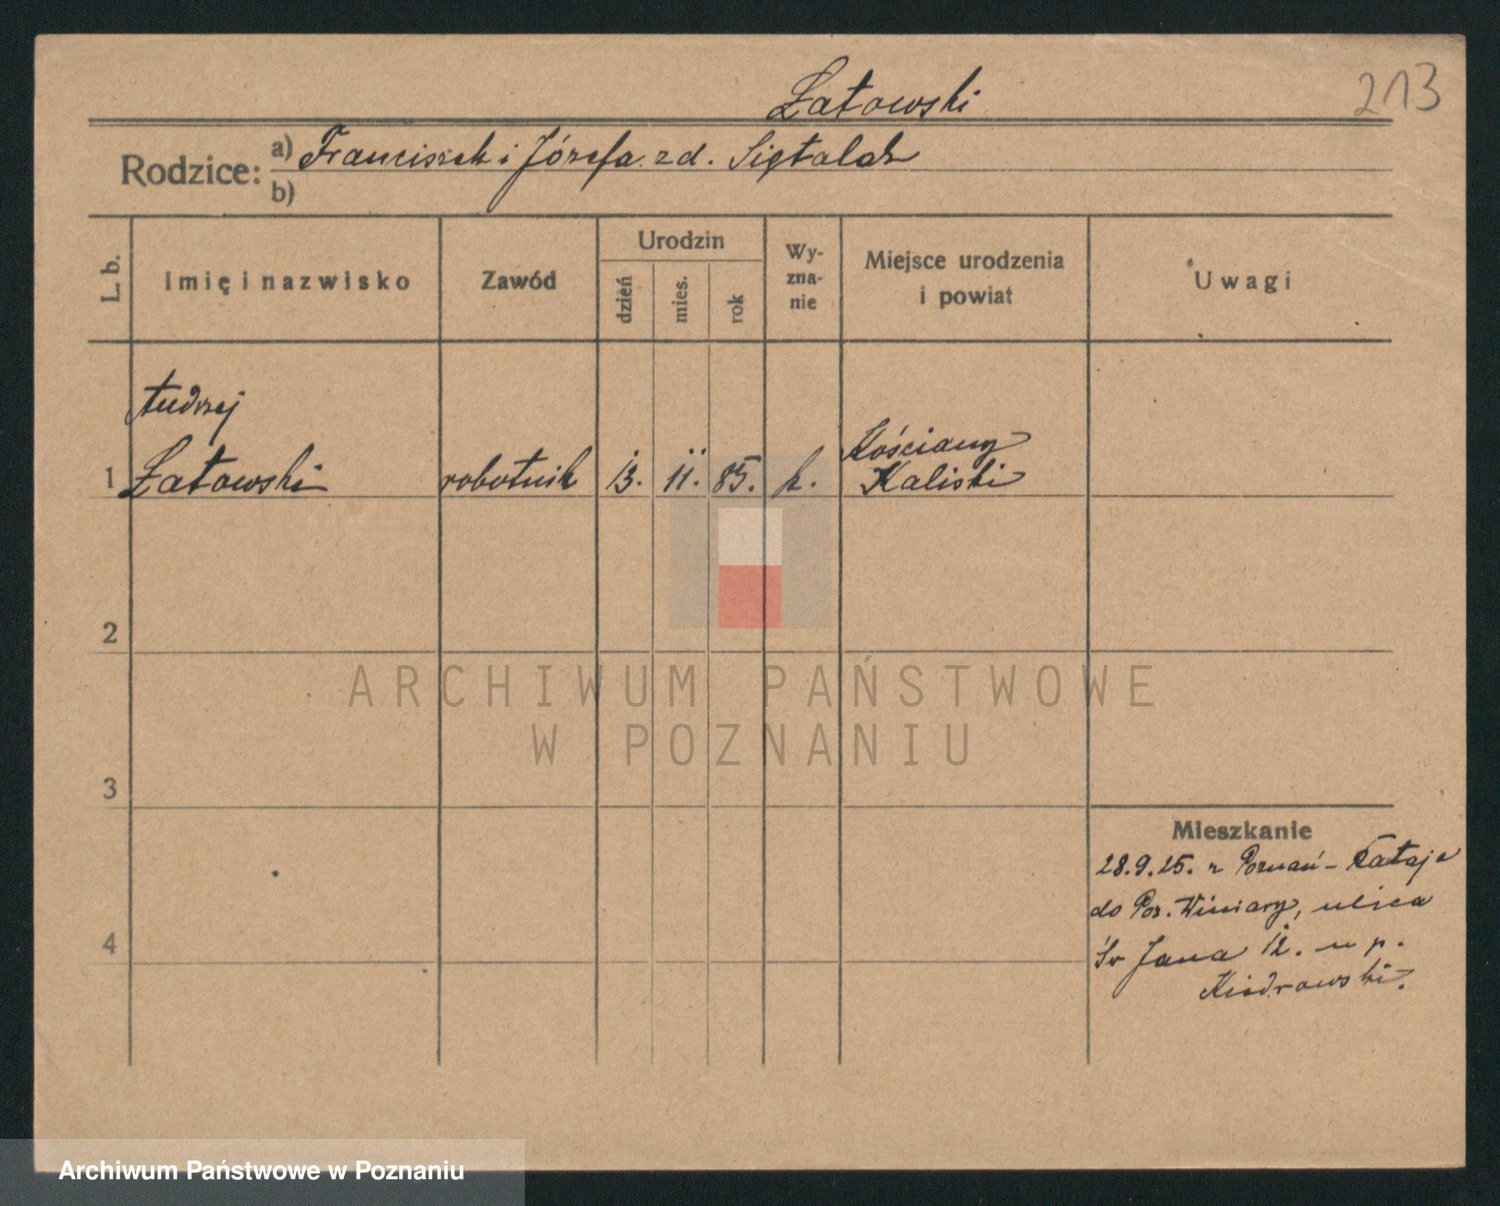 Łatowski
213
Rodzice:
a) Franciszek i Józefa zd. Siętalak
b)
L. b.
Imię i nazwisko
Zawód
Urodzin
dzień
mies.
rok
Wy-
zna-
nie
Miejsce urodzenia
i powiat
Uwagi
Andrzej
1 Łatowski robotnik 13. 11. 85. k. Kościany
Kaliski
2
3
4
Mieszkanie
28.9.25. z Poznań - Rataje
do Poz. Winiary, ulica
Św Jana 12. u p.
Kiedrowski.
ARCHIWUM PAŃSTWOWE
W POZNANIU
Archiwum Państwowe w Poznaniu